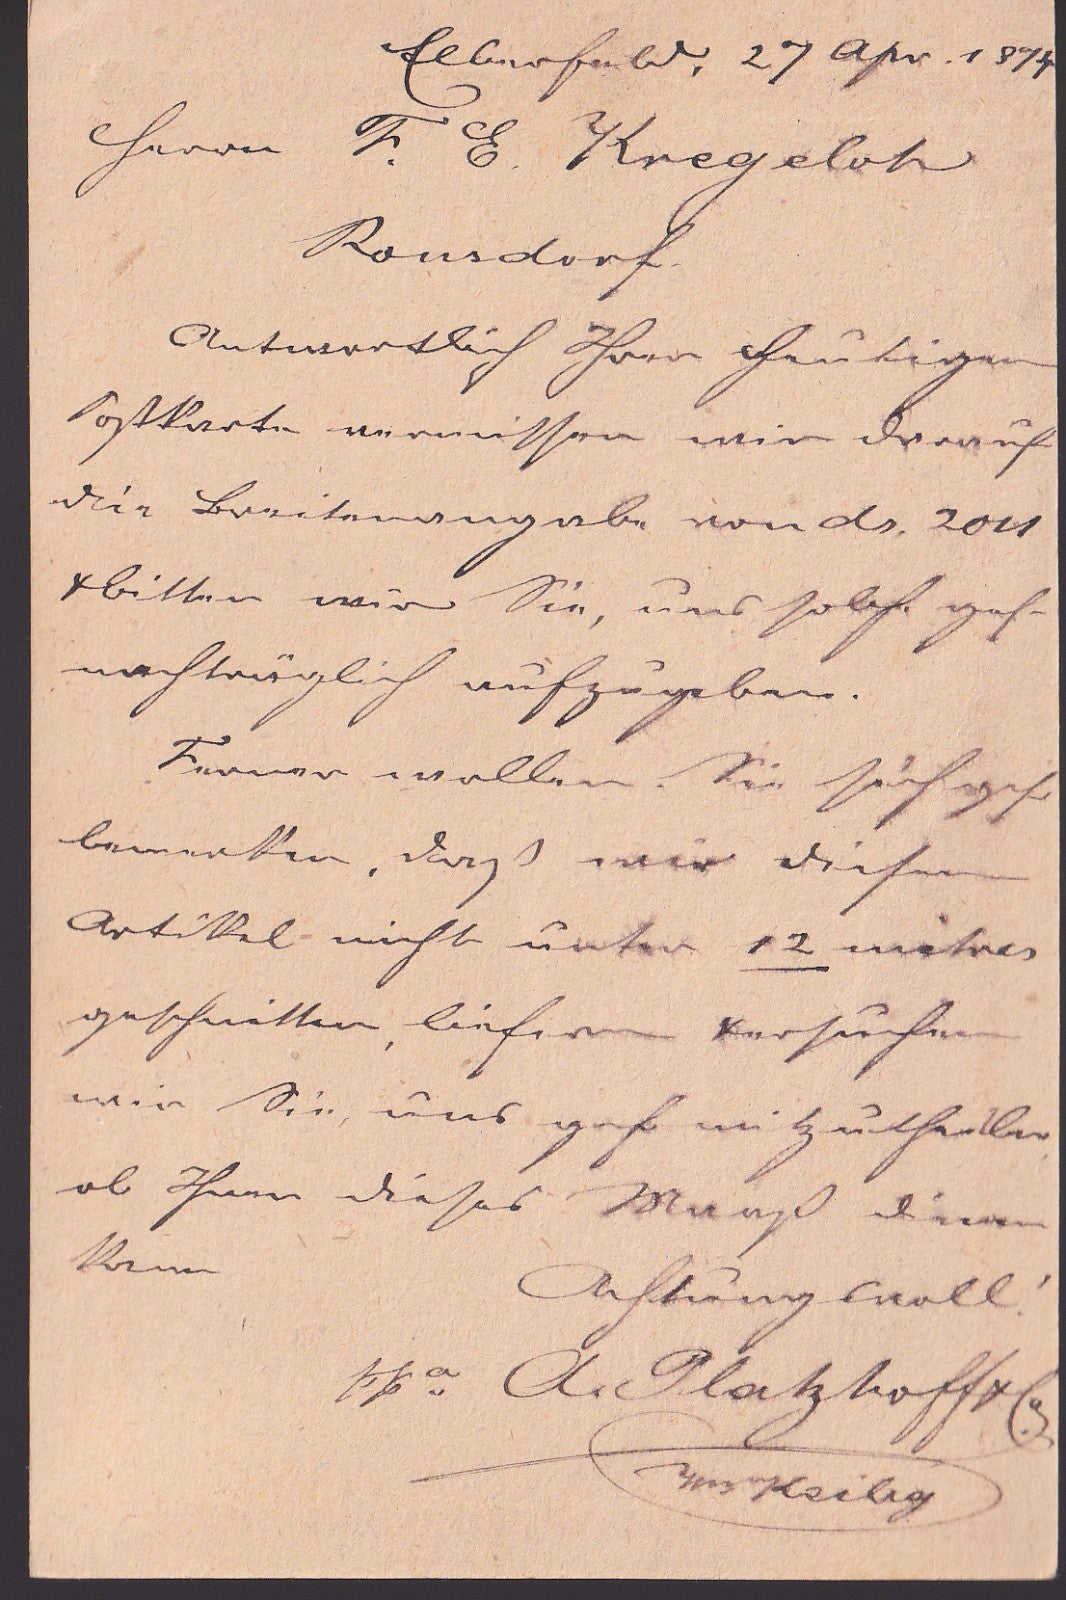 Elberfeld, 27 Apr. 1874
Herrn F. E. Kregeloh
Ronsdorf.
Antwortlich Ihrer heutigen
Postkarte vermissen wir darauf
die Breitenangabe von ds. 2011
& bitten wir Sie, uns solche gef.
nachträglich aufzugeben.
Ferner wollen Sie sich gef.
bemerken, daß wir diesen
Artikel nicht unter 12 mètres
geschnitten, liefern & ersuchen
wir Sie, uns gef. mitzutheilen
ob Ihnen dieses Maaß dienen
kann
Achtungsvoll!
ppa. A. Platzhoff & Co.